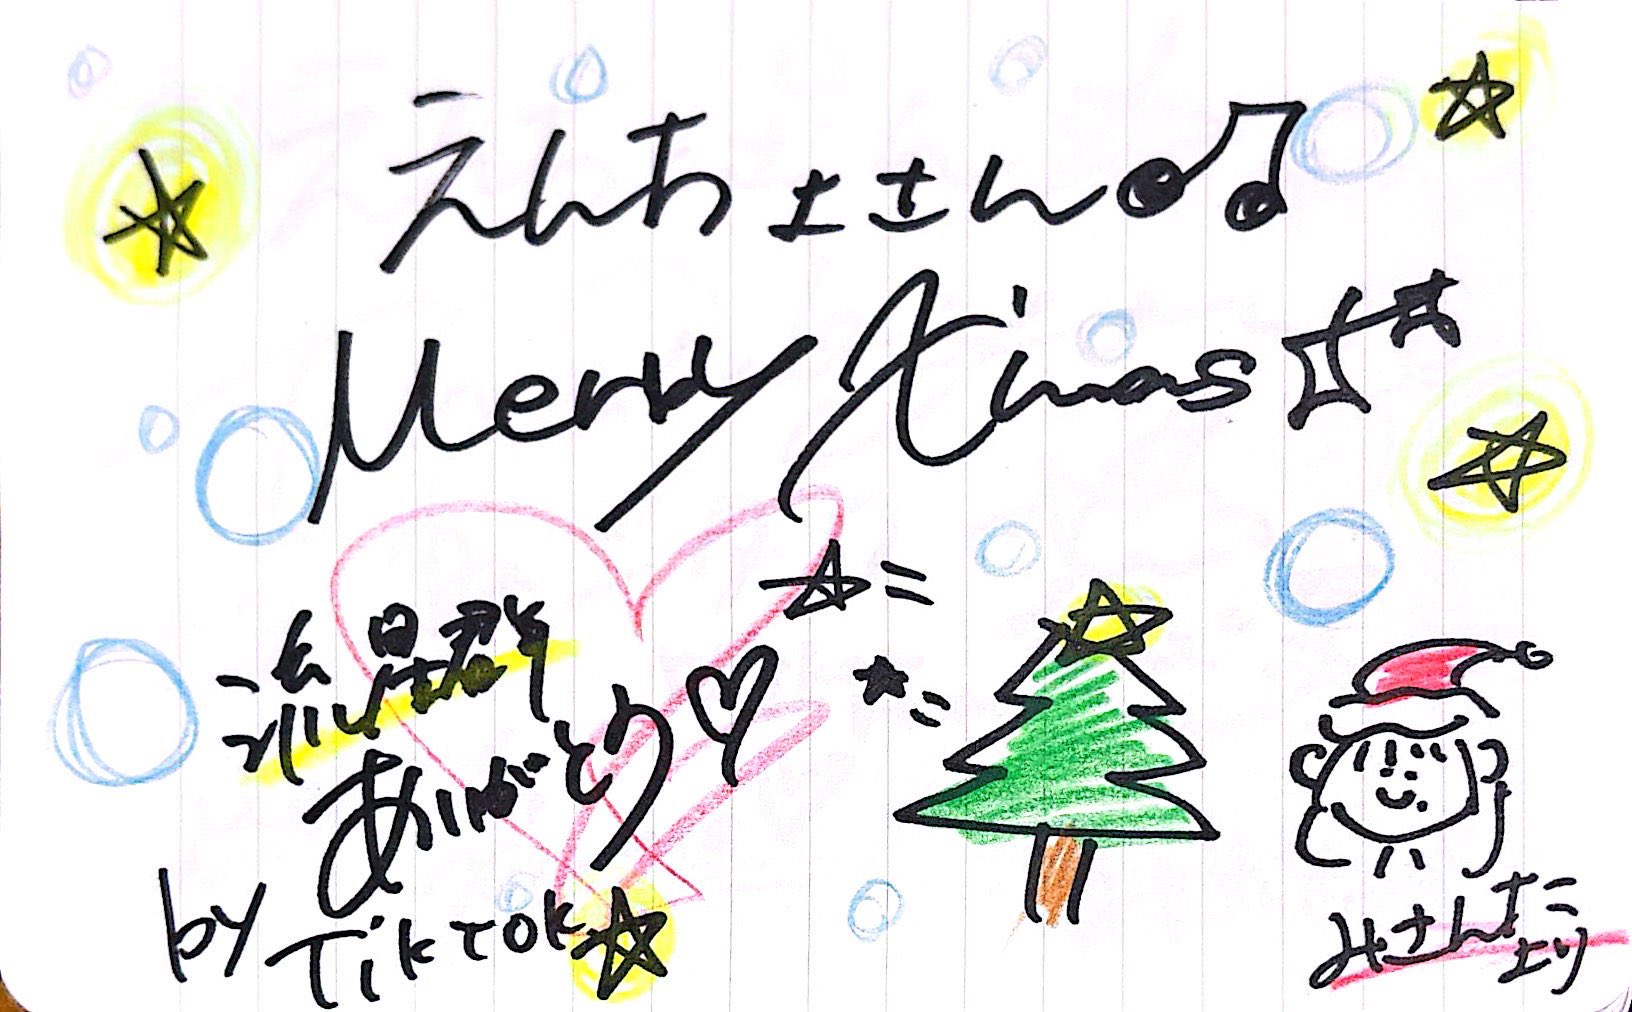 えんちょさん♪
Merry X'mas
☆=
★=
流星群
ありがとう♡
by TikTok☆
みさんたより